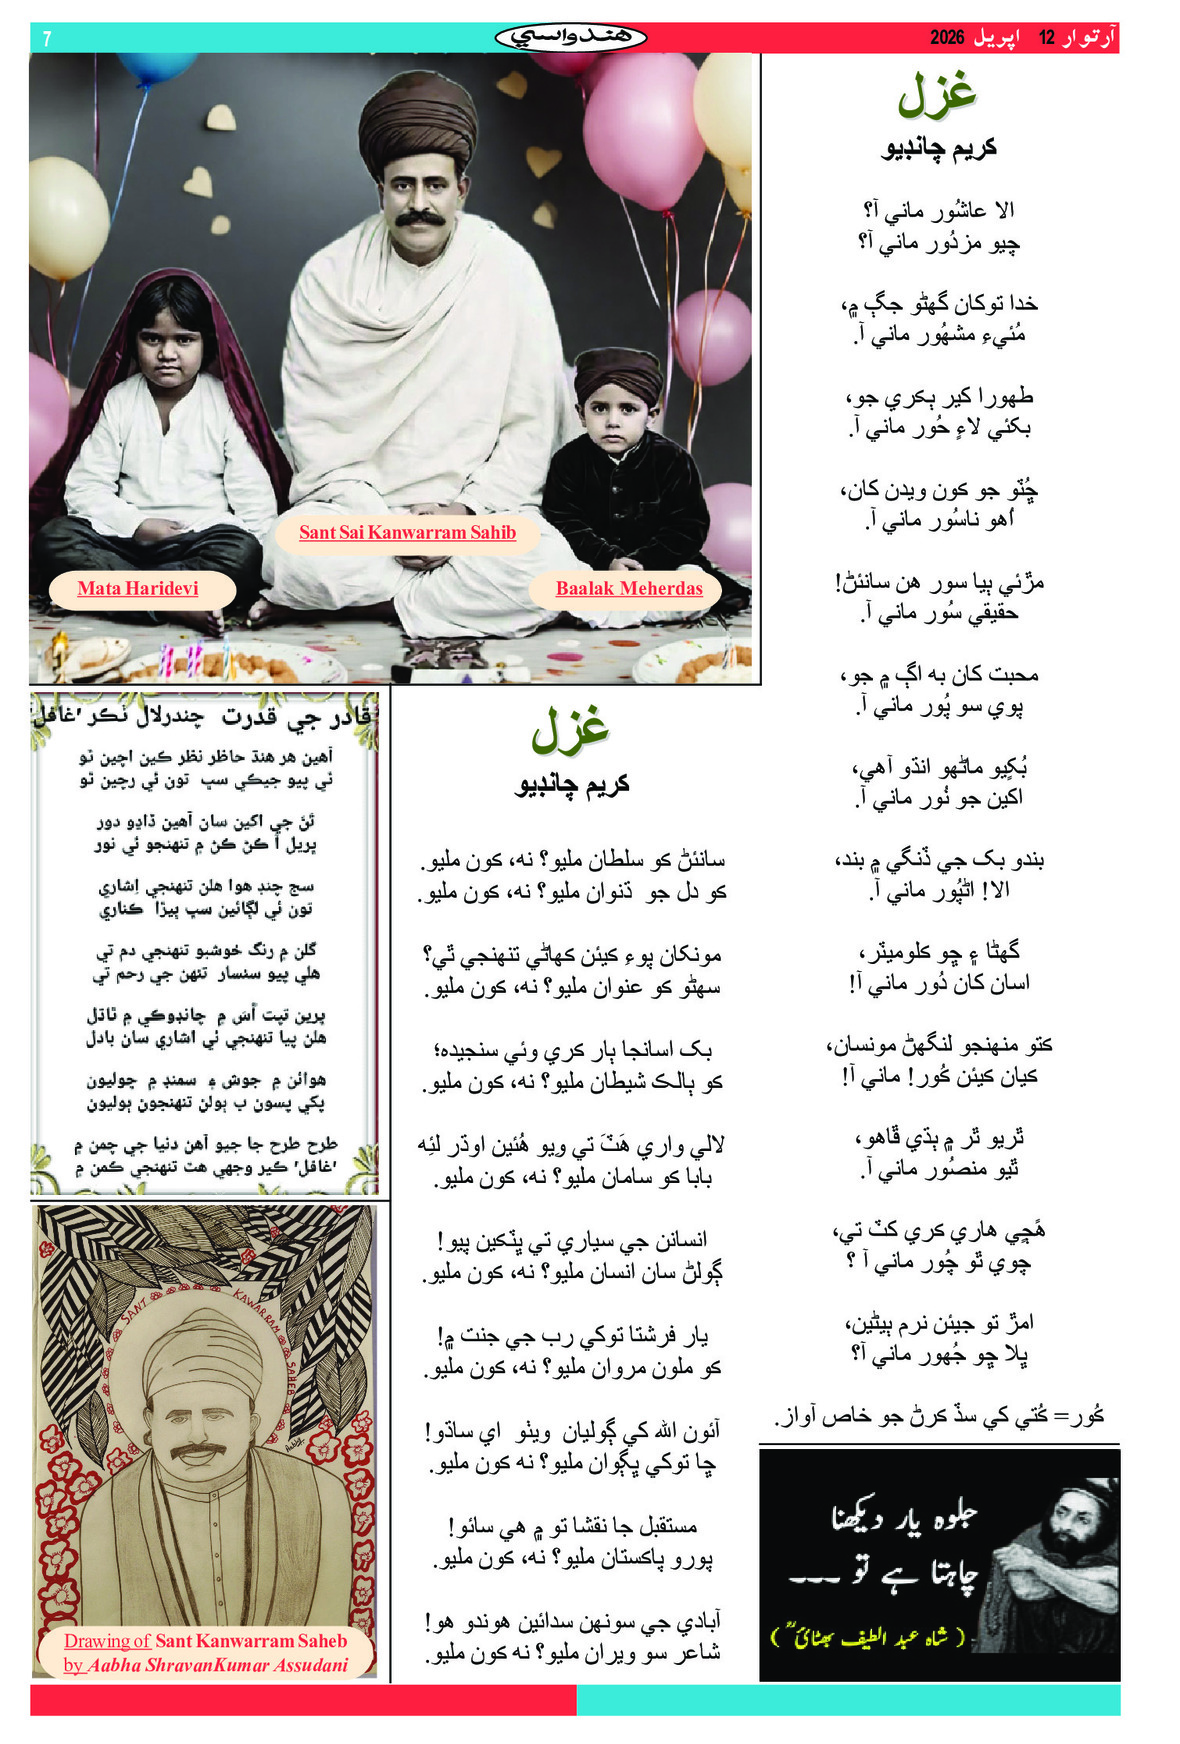 آرتوار 12 اپريل 2026
هندواسي
7
غزل
ڪريم چانڊيو
الا عاشُور ماني آ؟
چيو مزدُور ماني آ؟
خدا توکان گھڻو جڳ ۾،
مُئيءِ مشھُور ماني آ.
طهورا ڪير ٻڪري جو،
بکئي لاءِ حُور ماني آ.
ڇُٽو جو ڪون ويدن کان،
اُهو ناسُور ماني آ.
مڙئي ٻيا سور هن سانئڻ!
حقيقي سُور ماني آ.
محبت کان به اڳ ۾ جو،
پوي سو پُور ماني آ.
بُکيو ماڻهو انڌو آهي،
اکين جو نُور ماني آ.
بندو بک جي ڏنگي ۾ بند،
الا! اڻپُور ماني آ.
گھڻا ۽ ڇو ڪلوميٽر،
اسان کان دُور ماني آ!
ڪتو منهنجو لنگهڻ مونسان،
ڪيان ڪيئن ڪُور! ماني آ!
ٿريو ٿر ۾ ٻڌي ڦاهو،
ٿيو منصُور ماني آ.
هَچي هاري ڪري کٽ تي،
چوي ٿو چُور ماني آ ؟
امڙ تو جيئن نرم ٻيڻين،
ڀلا ڇو جُھور ماني آ؟
ڪُور= ڪُتي کي سڏ ڪرڻ جو خاص آواز.
Sant Sai Kanwarram Sahib
Mata Haridevi
Baalak Meherdas
غزل
ڪريم چانڊيو
سانئڻ ڪو سلطان مليو؟ نه، ڪون مليو.
ڪو دل جو ڌنوان مليو؟ نه، ڪون مليو.
مونکان پوءِ ڪيئن ڪهاڻي تنهنجي ٿي؟
سهڻو ڪو عنوان مليو؟ نه، ڪون مليو.
بک اسانجا ٻار ڪري وئي سنجيده؛
ڪو ٻالڪ شيطان مليو؟ نه، ڪون مليو.
لالي واري هَٽَ تي ويو هُئين اوڌر لئه
بابا ڪو سامان مليو؟ نه، ڪون مليو.
انسانن جي سياري تي ڀٽڪين پيو!
ڳولڻ سان انسان مليو؟ نه، ڪون مليو.
يار فرشتا توکي رب جي جنت ۾!
ڪو ملون مروان مليو؟ نه، ڪون مليو.
آئون الله کي ڳوليان ويٺو اي ساڌو!
ڇا توکي ڀڳوان مليو؟ نه ڪون مليو.
مستقبل جا نقشا تو ۾ هي سائو!
پورو پاڪستان مليو؟ نه، ڪون مليو.
آبادي جي سونهن سدائين هوندو هو!
شاعر سو ويران مليو؟ نه ڪون مليو.
قادر جي قدرت چندرلال ٺڪر ’غافل‘
آهين هر هنڌ حاظر نظر ڪين اچين ٿو
ٿي پيو جيڪي سڀ تون ئي رچين ٿو
ٿَنَ جي اکين سان آهين ڏاڍو دور
پريل آ ڪڻ ڪڻ ۾ تنهنجو ئي نور
سج چنڊ هوا هلن تنهنجي اِشاري
تون ئي لڳائين سڀ ٻيڙا ڪناري
گلن ۾ رنگ خوشبو تنهنجي دم تي
هلي پيو سنسار تنهن جي رحم تي
پرين تپت اُس ۾ چانڊوڪي ۾ ٿاڌل
هلن پيا تنهنجي ئي اشاري سان بادل
هوائن ۾ جوش ۽ سمنڊ ۾ ڇوليون
پکي پسون ب ٻولن تنهنجون ٻوليون
طرح طرح جا جيو آهن دنيا جي چمن ۾
’غافل‘ ڪير وجهي هٿ تنهنجي ڪمن ۾
SANT KAWARRAM SAHEB
Drawing of Sant Kanwarram Saheb
by Aabha ShravanKumar Assudani
جلوہ یار دیکھنا
چاہتا ہے تو ۔۔۔
( شاہ عبد الطیف بھٹائیؒ )